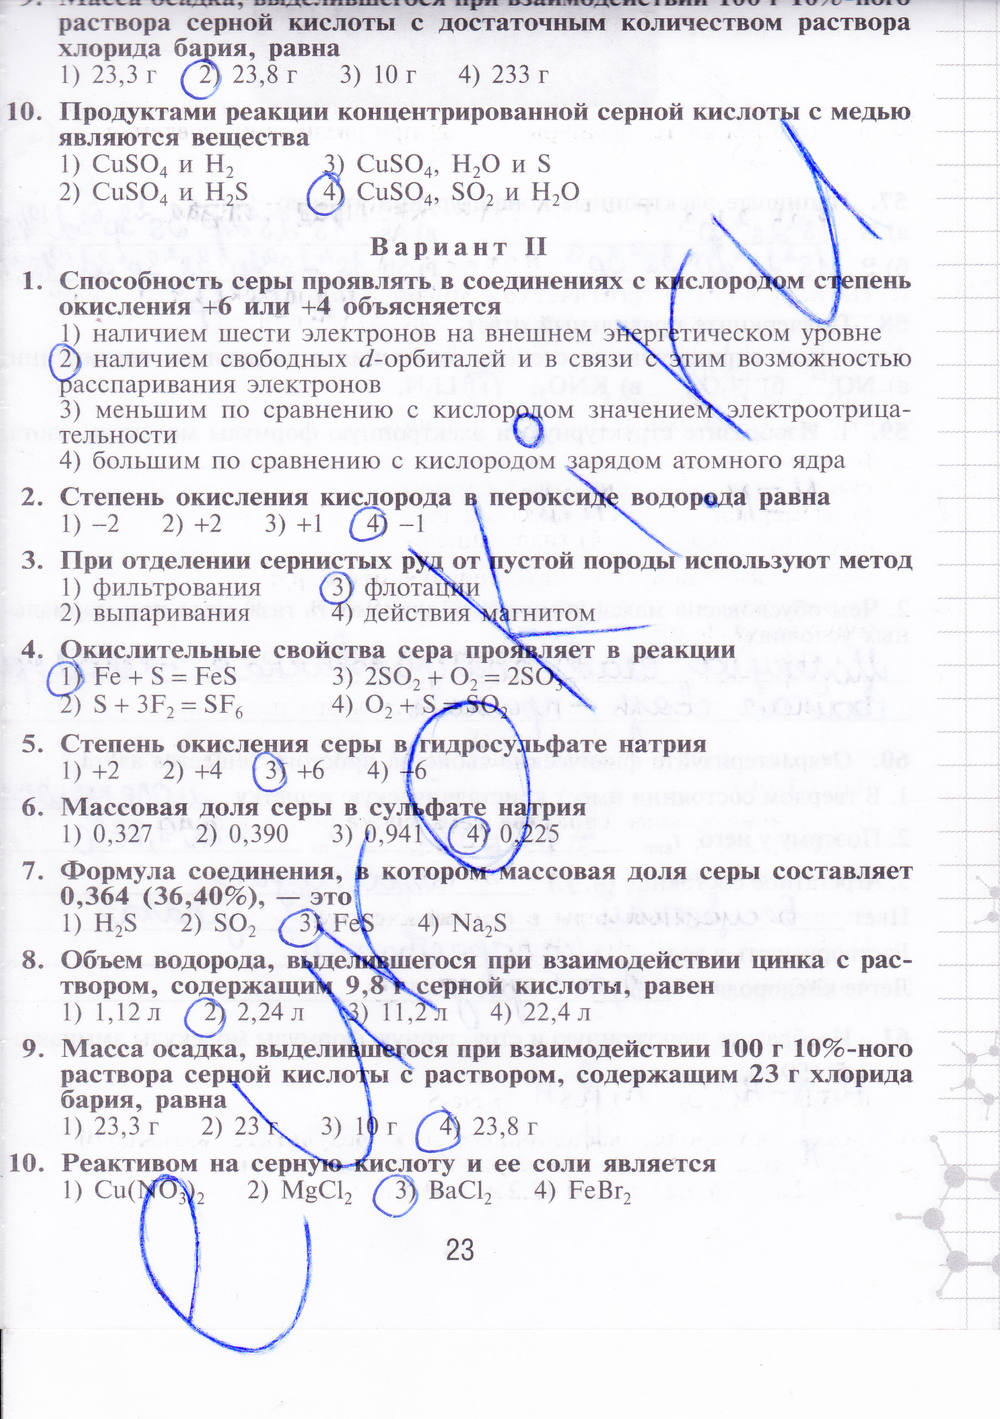 9. Масса осадка, выделившегося при взаимодействии 100 г 10%-ного
раствора серной кислоты с достаточным количеством раствора
хлорида бария, равна
1) 23,3 г 2) 23,8 г 3) 10 г 4) 233 г
10. Продуктами реакции концентрированной серной кислоты с медью
являются вещества
1) CuSO4 и H2 3) CuSO4, H2O и S
2) CuSO4 и H2S 4) CuSO4, SO2 и H2O
Вариант II
1. Способность серы проявлять в соединениях с кислородом степень
окисления +6 или +4 объясняется
1) наличием шести электронов на внешнем энергетическом уровне
2) наличием свободных d-орбиталей и в связи с этим возможностью
расспаривания электронов
3) меньшим по сравнению с кислородом значением электроотрица-
тельности
4) большим по сравнению с кислородом зарядом атомного ядра
2. Степень окисления кислорода в пероксиде водорода равна
1) –2 2) +2 3) +1 4) –1
3. При отделении сернистых руд от пустой породы используют метод
1) фильтрования 3) флотации
2) выпаривания 4) действия магнитом
4. Окислительные свойства сера проявляет в реакции
1) Fe + S = FeS 3) 2SO2 + O2 = 2SO3
2) S + 3F2 = SF6 4) O2 + S = SO2
5. Степень окисления серы в гидросульфате натрия
1) +2 2) +4 3) +6 4) –6
6. Массовая доля серы в сульфате натрия
1) 0,327 2) 0,390 3) 0,941 4) 0,225
7. Формула соединения, в котором массовая доля серы составляет
0,364 (36,40%), — это
1) H2S 2) SO2 3) FeS 4) Na2S
8. Объем водорода, выделившегося при взаимодействии цинка с рас-
твором, содержащим 9,8 г серной кислоты, равен
1) 1,12 л 2) 2,24 л 3) 11,2 л 4) 22,4 л
9. Масса осадка, выделившегося при взаимодействии 100 г 10%-ного
раствора серной кислоты с раствором, содержащим 23 г хлорида
бария, равна
1) 23,3 г 2) 23 г 3) 10 г 4) 23,8 г
10. Реактивом на серную кислоту и ее соли является
1) Cu(NO3)2 2) MgCl2 3) BaCl2 4) FeBr2
23